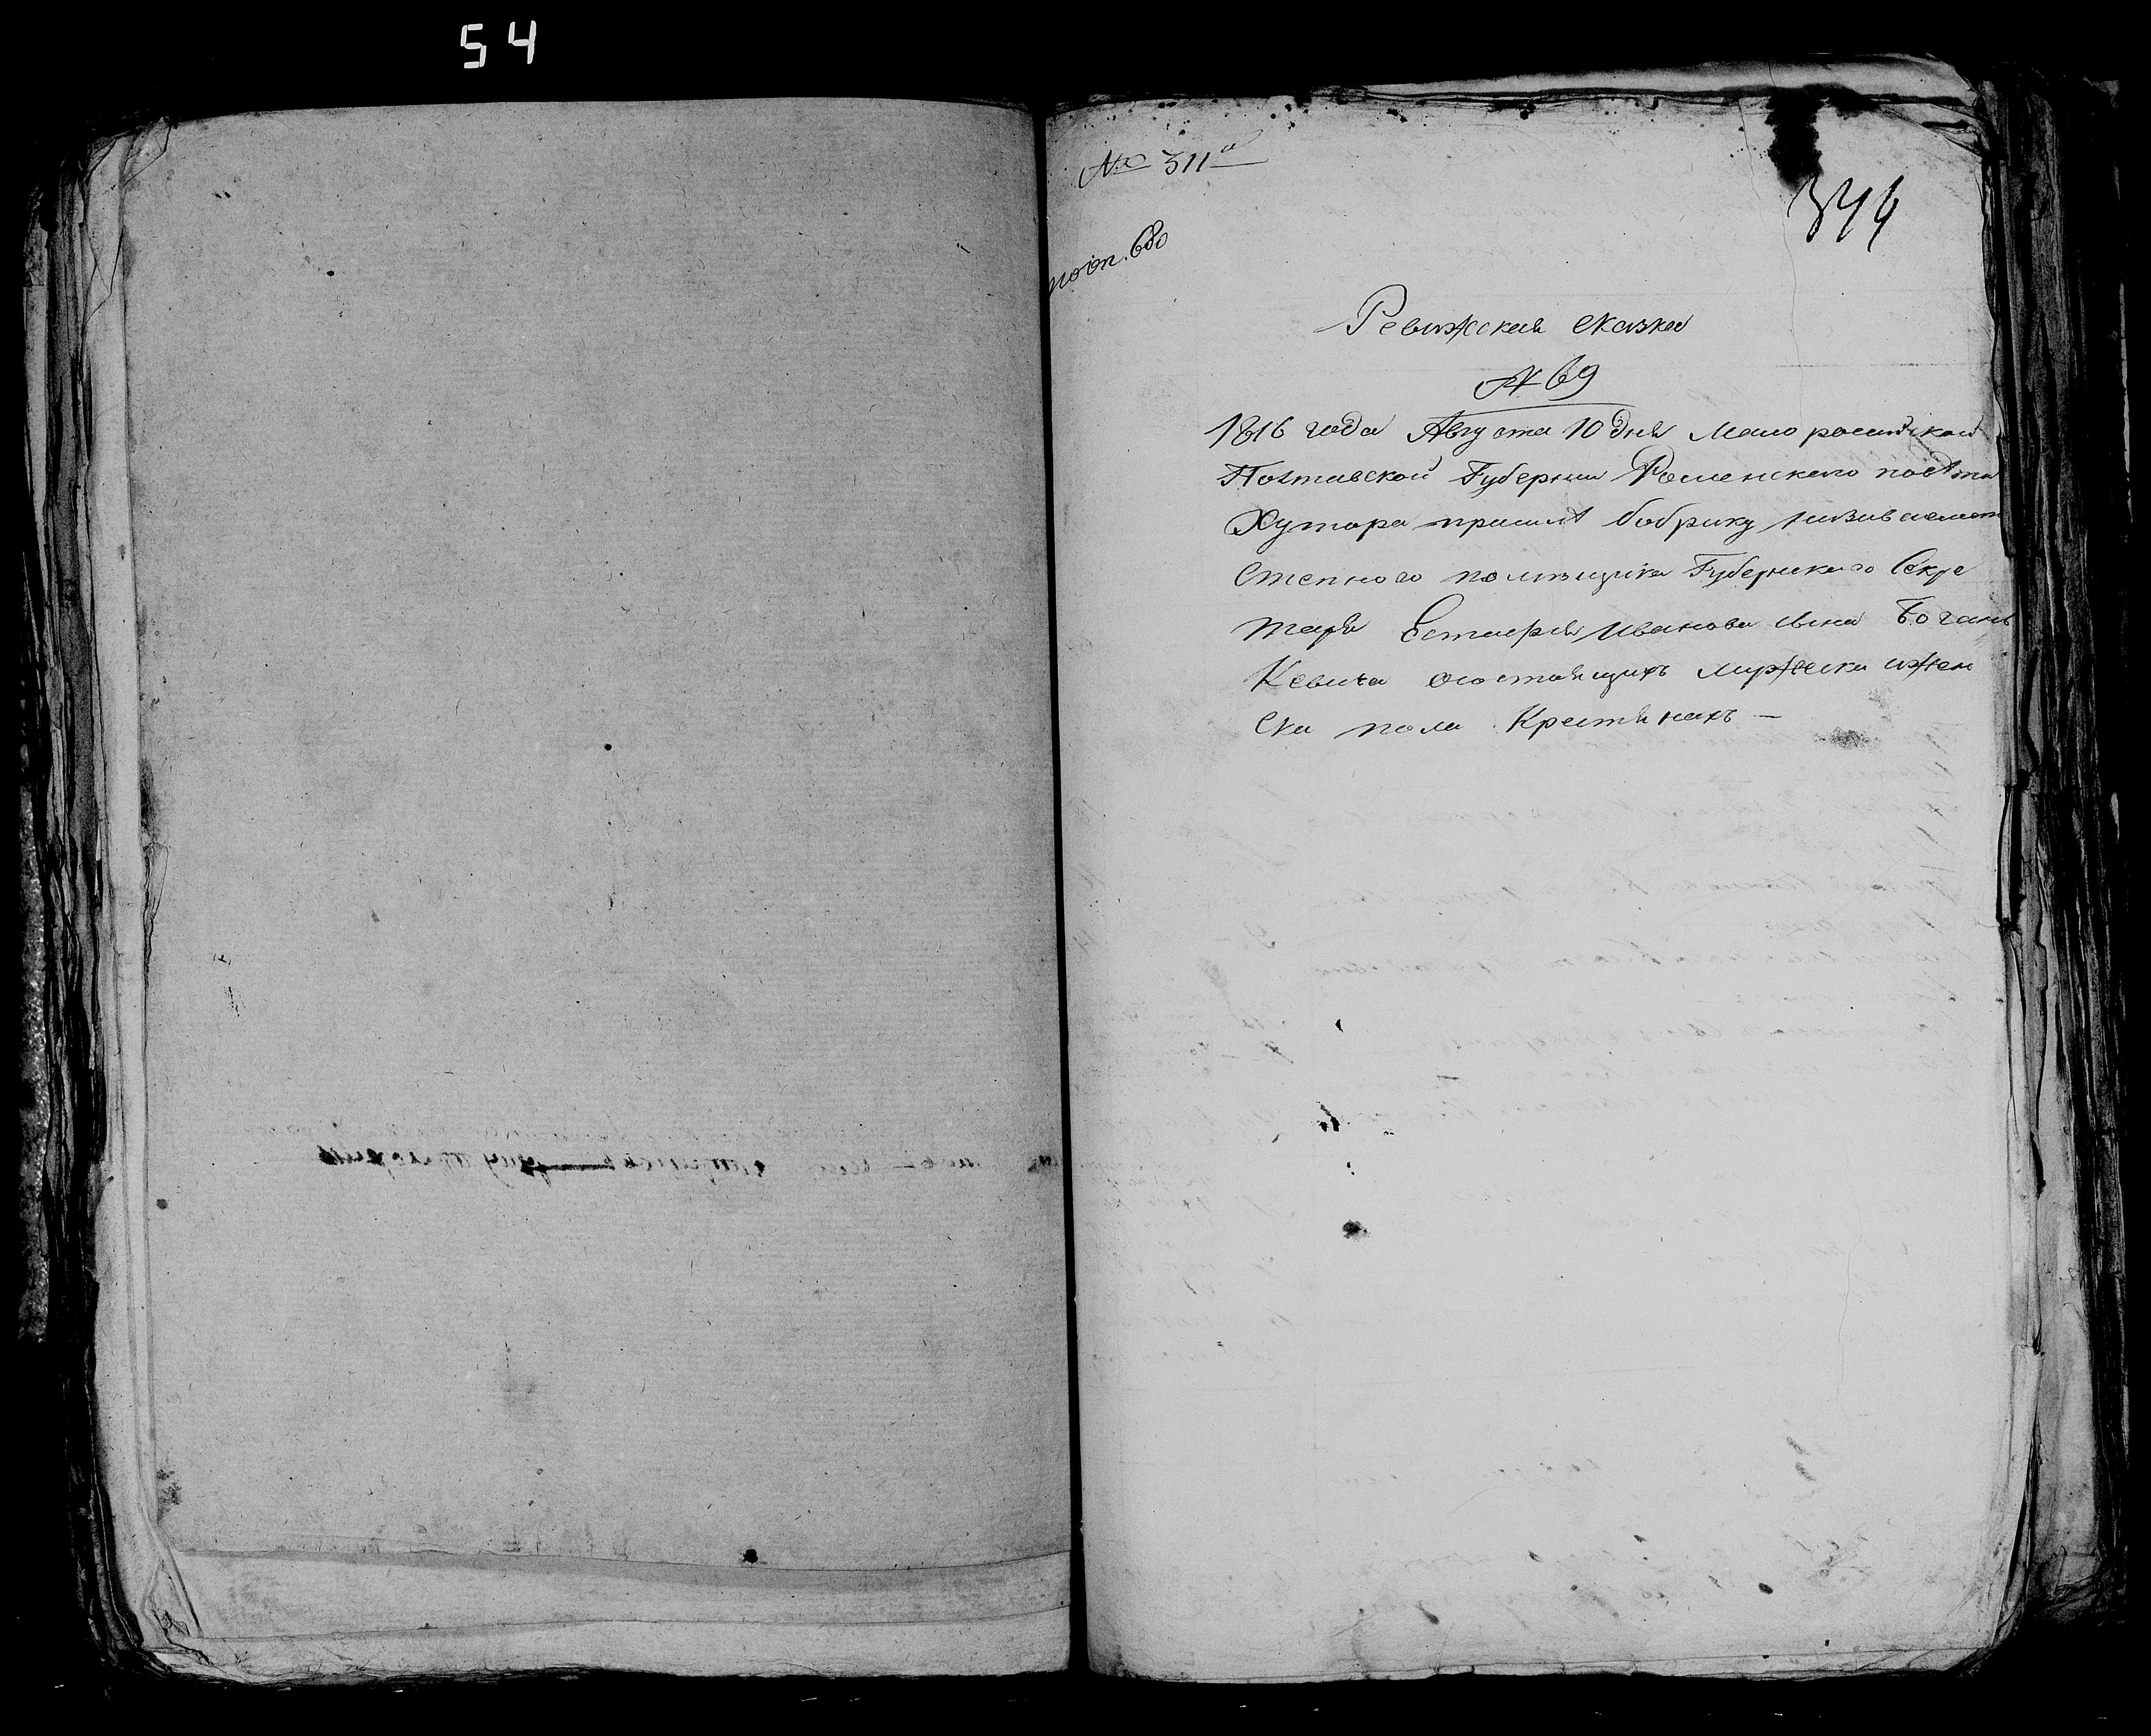 54
№ 311й
344
по оп. 680
Ревижская сказка
№ 69
1816 года Августа 10 дня Малороссийской
Полтавской Губернии Роменского повѣта
Хутора при селѣ бобрику
Степного помѣщика Губернского Секре
таря Естафия Иванова сына Боган
кевича осостоящихъ мужеска ижен
ска пола Крестянахъ —